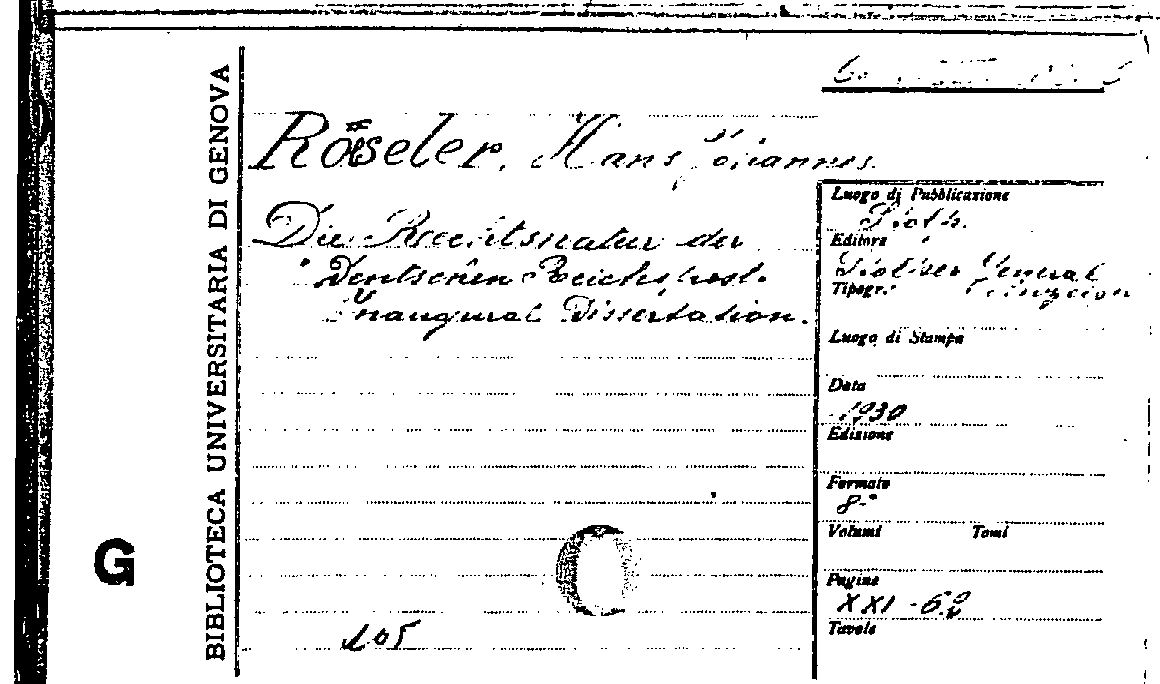 BIBLIOTECA UNIVERSITARIA DI GENOVA
G
Röseler, Hans Johannes.
Die Rechtsnatur der
Deutschen Reichspost.
Inaugural Dissertation.
105
Luogo di Pubblicazione
Editore
General
Tipogr.
Luogo di Stampa
Data
1930
Edizione
Formato
8°
Volumi Tomi
Pagine
XXI - 62
Tavole